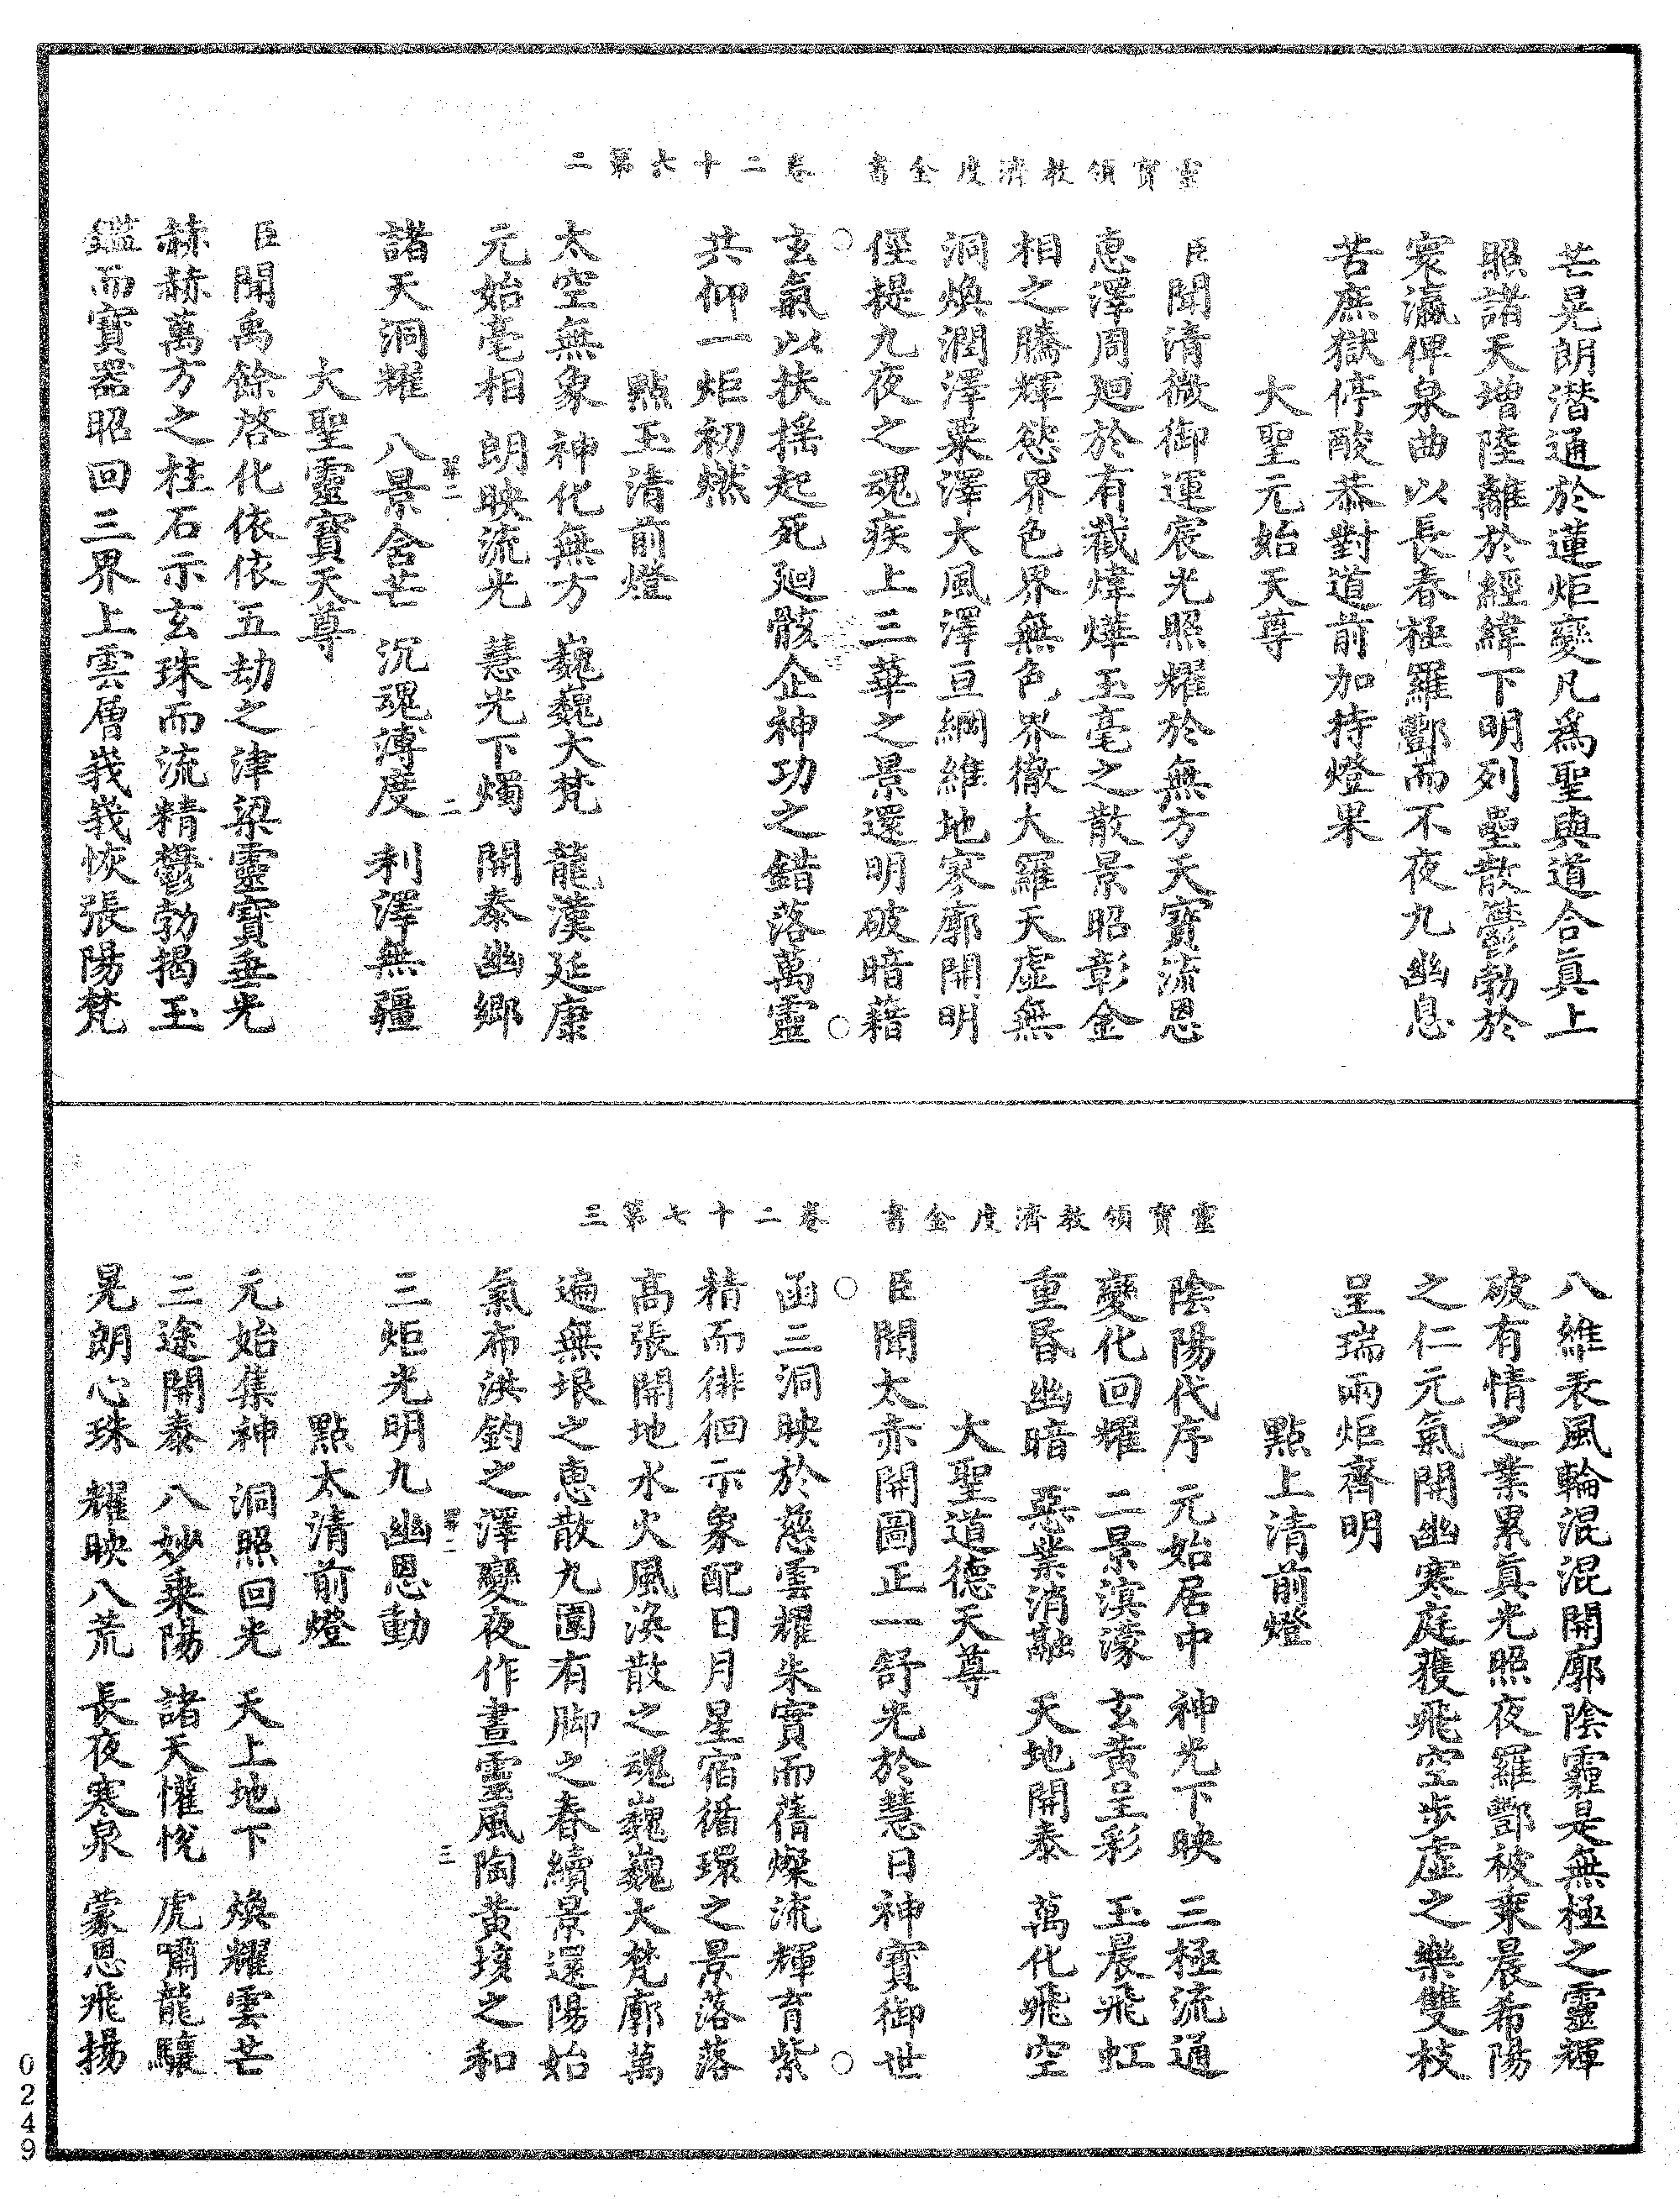 靈寶領教濟度金書　卷二十六第二
芒晃朗潛通於蓮炬變凡爲聖與道合眞上
照諸天增陸離於經緯下明列壘散鬱勃於
寰瀛俾泉曲以長春極羅酆而不夜九幽息
苦庶獄停酸恭對道前加持燈果
大聖元始天尊
臣聞清微御運宸光照耀於無方天寶流恩
惠澤周廻於有截煒燁玉毫之散景昭彰金
相之騰輝慾界色界無色界徹大羅天虛無
洞煥潤澤粟澤大風澤亘綱維地寥廓開明
俓提九夜之魂疾上三華之景還明破暗藉
玄氣以扶搖起死廻骸企神功之錯落萬靈
共仰一炬初燃
點玉清前燈
太空無象　神化無方　巍巍大梵　龍漢延康
元始毫相　朗映流光　慧光下燭　開泰幽鄉
諸天洞耀　八景含芒　沉魂溥度　利澤無疆
大聖靈寶天尊
臣聞禹餘啓化依依五劫之津梁靈寶垂光
赫赫萬方之柱石示玄珠而流精鬱勃揭玉
鑑而寶器昭回三界上雲層峩峩恢張陽梵
二
靈寶領教濟度金書　卷二十七第三
八維表風輪混混開廓陰霾是無極之靈輝
破有情之業累眞光照夜羅酆被東晨希陽
之仁元氣開幽寒庭獲飛空步虛之樂雙枝
呈瑞兩炬齊明
點上清前燈
陰陽代序　元始居中　神光下映　三極流通
變化回耀　二景溟濛　玄黃呈彩　玉晨飛虹
重昏幽暗　惡業消融　天地開泰　萬化飛空
大聖道德天尊
臣聞太赤開圖正一舒光於慧日神寶御世
函三洞映於慈雲耀朱實而蒨燦流輝育紫
精而徘徊示象配日月星宿循環之景落落
高張開地水火風渙散之魂巍巍大梵廓萬
遍無垠之惠散九園有脚之春續景還陽始
氣布洪鈞之澤變夜作晝靈風陶黃壤之和
三炬光明九幽恩動
點太清前燈
元始集神　洞照回光　天上地下　煥耀雲芒
三途開泰　八妙乗陽　諸天懽悅　虎嘯龍驤
晃朗心珠　耀映八荒　長夜寒泉　蒙恩飛揚
三
0249